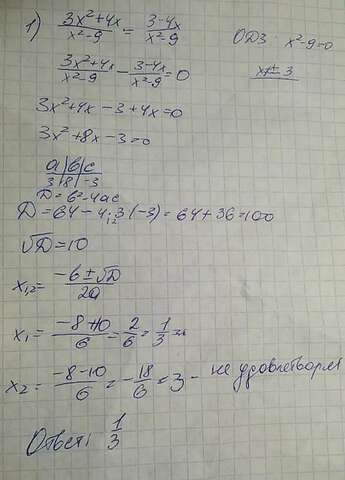 1) (3x²+4x)/(x²-9) = (3-4x)/(x²-9) ОДЗ x²-9=0
(3x²+4x)/(x²-9) - (3-4x)/(x²-9) = 0 x≠±3
3x²+4x-3+4x=0
3x²+8x-3=0
a|b|c
3|8|-3
D=b²-4ac
D=64-4·3(-3)=64+36=100
√D=10
x₁,₂= (-b±√D)/2a
x₁= (-8+10)/6 = 2/6 = 1/3
x₂= (-8-10)/6 = -18/6 = 3 - не удовлетворяет
Ответ: 1/3